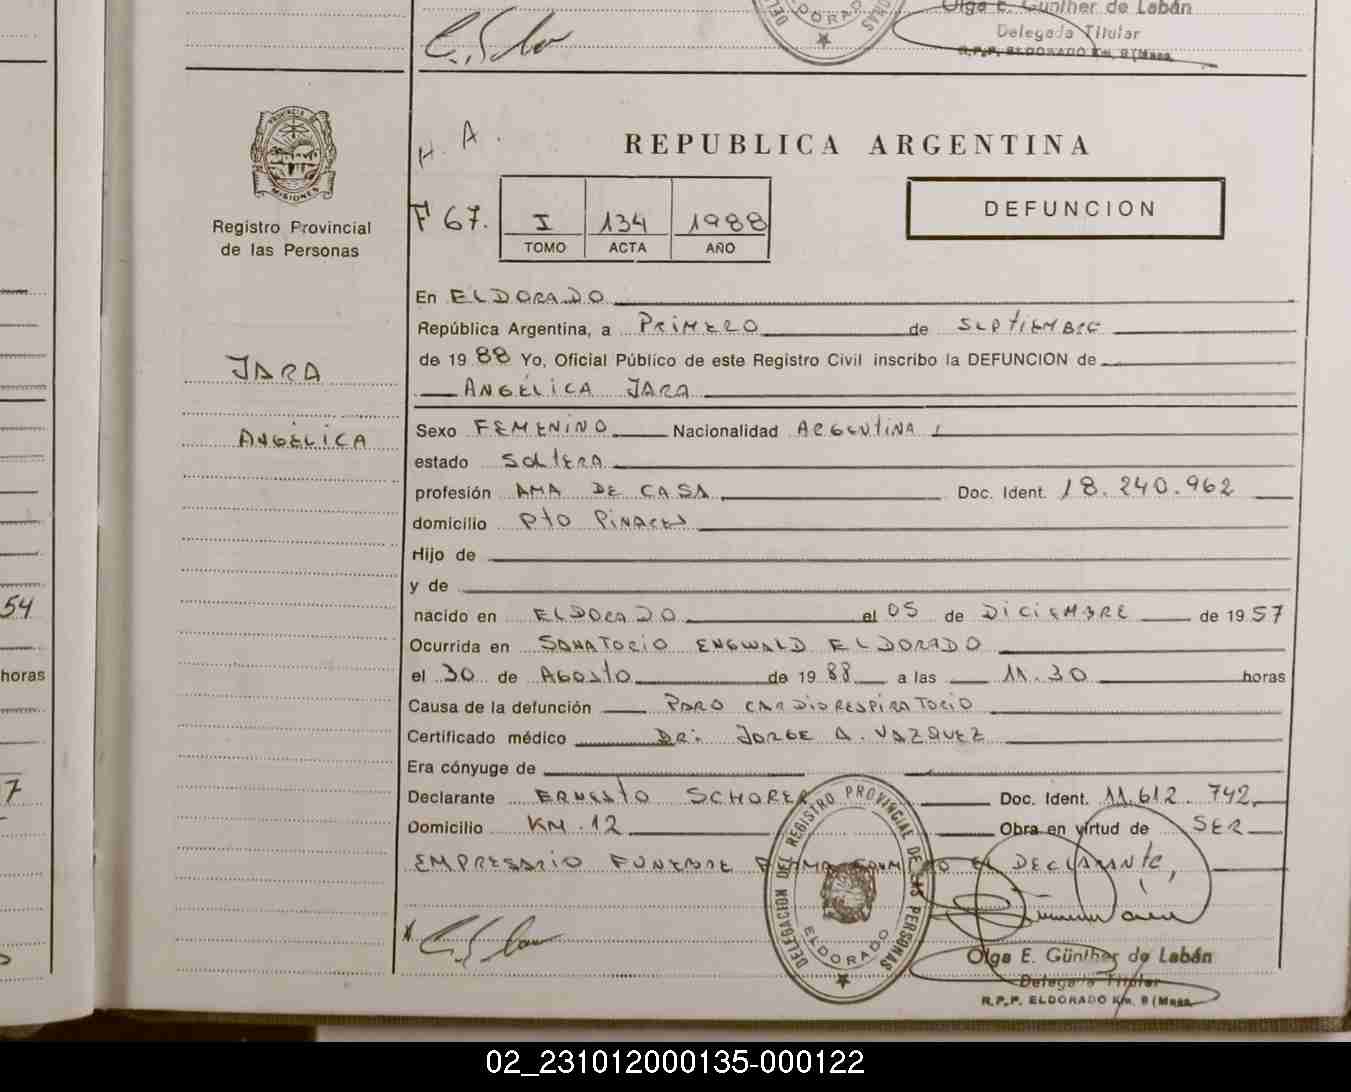 Olga E. Günther de Labán
Delegada Titular
R.P.P. ELDORADO Km. 9 (Mnes.
PROVINCIA DE
MISIONES
Registro Provincial
de las Personas
H. A.
REPUBLICA ARGENTINA
F 67.
I 134 1988
TOMO ACTA AÑO
DEFUNCION
En ELDORADO
República Argentina, a PRIMERO de SEPTIEMBRE
de 1988 Yo, Oficial Público de este Registro Civil inscribo la DEFUNCION de
ANGÉLICA JARA
JARA
ANGÉLICA
Sexo FEMENINO Nacionalidad ARGENTINA
estado SOLTERA
profesión AMA DE CASA Doc. Ident. 18.240.962
domicilio Pto PINARES
Hijo de
y de
nacido en ELDORADO el 05 de DICIEMBRE de 1957
Ocurrida en SANATORIO ENGWALD ELDORADO
el 30 de AGOSTO de 1988 a las 11.30 horas
Causa de la defunción PARO CARDIORESPIRATORIO
Certificado médico DR: JORGE A. VAZQUEZ
Era cónyuge de
Declarante ERNESTO SCHORER Doc. Ident. 11.612.742
Domicilio KM.12 Obra en virtud de SER
EMPRESARIO FUNEBRE FIRMA EL DECLARANTE,
DELEGACION DEL REGISTRO PROVINCIAL DE LAS PERSONAS
ELDORADO
Olga E. Günther de Labán
Delegada Titular
R.P.P. ELDORADO Km. 9 (Mnes.
54
horas
7
02_231012000135-000122